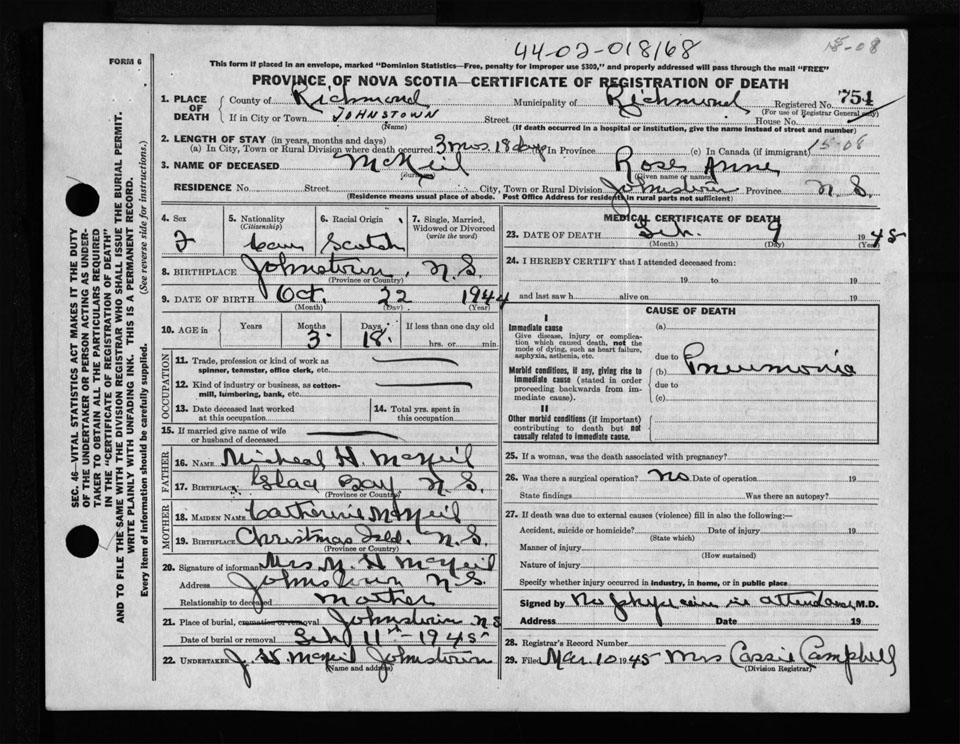 44-02-018168
15-08
FORM 6
This form if placed in an envelope, marked "Dominion Statistics—Free, penalty for improper use $300," and properly addressed will pass through the mail "FREE"
PROVINCE OF NOVA SCOTIA—CERTIFICATE OF REGISTRATION OF DEATH
1. PLACE OF DEATH
County of Richmond Municipality of Richmond Registered No. 754
(For use of Registrar General only)
If in City or Town JOHNSTOWN Street House No.
(Name) (If death occurred in a hospital or institution, give the name instead of street and number)
2. LENGTH OF STAY (in years, months and days) 15-08
(a) In City, Town or Rural Division where death occurred 3 mos. 18 days (b) In Province (c) In Canada (if immigrant)
3. NAME OF DECEASED McNeil Rose Anne
(Given name or names)
RESIDENCE No. Street City, Town or Rural Division Johnstown Province N. S.
(Residence means usual place of abode. Post Office Address for residents in rural parts not sufficient)
4. Sex 5. Nationality 6. Racial Origin 7. Single, Married, Widowed or Divorced
(Citizenship) (write the word)
Can Scotch
8. BIRTHPLACE Johnstown, N.S.
(Province or Country)
9. DATE OF BIRTH Oct. 22 1944
(Month) (Day) (Year)
10. AGE in Years Months Days If less than one day old
3 18 hrs. or min.
OCCUPATION
11. Trade, profession or kind of work as spinner, teamster, office clerk, etc.
12. Kind of industry or business, as cotton-mill, lumbering, bank, etc.
13. Date deceased last worked at this occupation
14. Total yrs. spent in this occupation
15. If married give name of wife or husband of deceased
FATHER
16. NAME Micheal H. McNeil
17. BIRTHPLACE Glace Bay N. S.
(Province or Country)
MOTHER
18. MAIDEN NAME Catherine McNeil
19. BIRTHPLACE Christmas Isld. N. S.
(Province or Country)
20. Signature of informant Mrs M. H McNeil
Address Johnstown N S.
Relationship to deceased Mother
21. Place of burial, cremation or removal Johnstown N S
Date of burial or removal Feb 11th - 1945
22. UNDERTAKER J. H McNeil Johnstown
(Name and address)
MEDICAL CERTIFICATE OF DEATH
23. DATE OF DEATH Feb. 9 1945
(Month) (Day) (Year)
24. I HEREBY CERTIFY that I attended deceased from:
19 to 19
and last saw h alive on 19
CAUSE OF DEATH
I
Immediate cause
Give disease, injury or complication which caused death, not the mode of dying, such as heart failure, asphyxia, asthenia, etc.
Morbid conditions, if any, giving rise to immediate cause (stated in order proceeding backwards from immediate cause).
II
Other morbid conditions (if important) contributing to death but not causally related to immediate cause.
(a)
due to
(b) Pneumonia
due to
(c)
25. If a woman, was the death associated with pregnancy?
26. Was there a surgical operation? No Date of operation 19
State findings Was there an autopsy?
27. If death was due to external causes (violence) fill in also the following:—
Accident, suicide or homicide? Date of injury 19
(State which)
Manner of injury
(How sustained)
Nature of injury
Specify whether injury occurred in industry, in home, or in public place
Signed by No physician in attendance, M.D.
Address Date 19
28. Registrar's Record Number
29. Filed Mar. 10 1945 Mrs Cassie Campbell
(Division Registrar)
SEC. 46—VITAL STATISTICS ACT MAKES IT THE DUTY
OF THE UNDERTAKER OR PERSON ACTING AS UNDER-
TAKER TO OBTAIN ALL THE PARTICULARS REQUIRED
IN THE "CERTIFICATE OF REGISTRATION OF DEATH"
AND TO FILE THE SAME WITH THE DIVISION REGISTRAR WHO SHALL ISSUE THE BURIAL PERMIT.
WRITE PLAINLY WITH UNFADING INK. THIS IS A PERMANENT RECORD.
Every item of information should be carefully supplied. (See reverse side for instructions.)